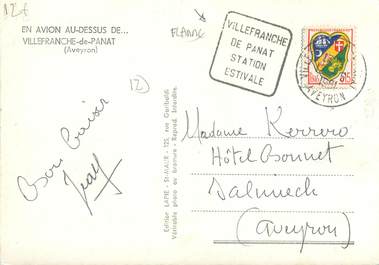 12+
EN AVION AU-DESSUS DE...
VILLEFRANCHE-de-PANAT
(Aveyron)
FLAMME
VILLEFRANCHE
DE PANAT
STATION
ESTIVALE
AVEYRON
12)
Bon baiser
Edition LAPIE - St-MAUR - 125, rue Garibaldi
Véritable photo au bromure - Reprod. Interdite.
Madame Kerrero
Hôtel Bonnet
Salmiech
(Aveyron)